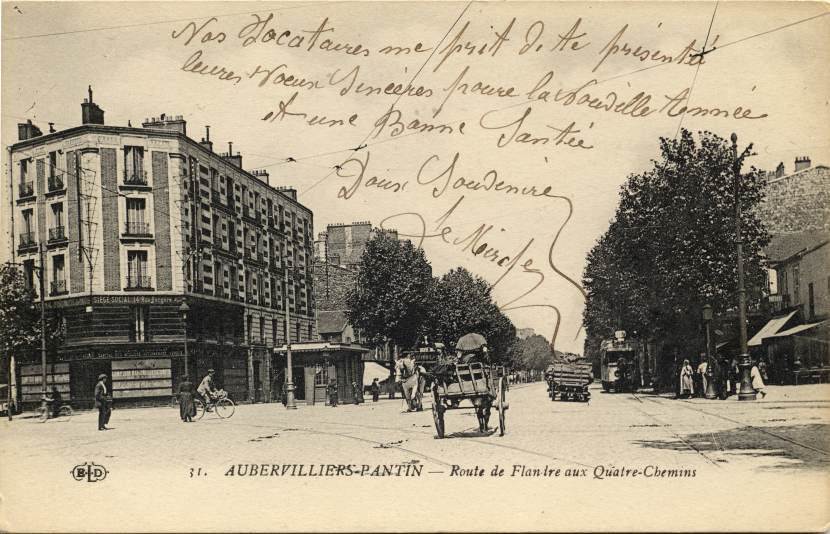 Nos Locataires me prit de te présenté
leures Voeux Sincères poure la Nouvelle Année
et une Bonne Santée
Doux Souvenire
SIÈGE SOCIAL
ELD
31. AUBERVILLIERS-PANTIN — Route de Flandre aux Quatre-Chemins